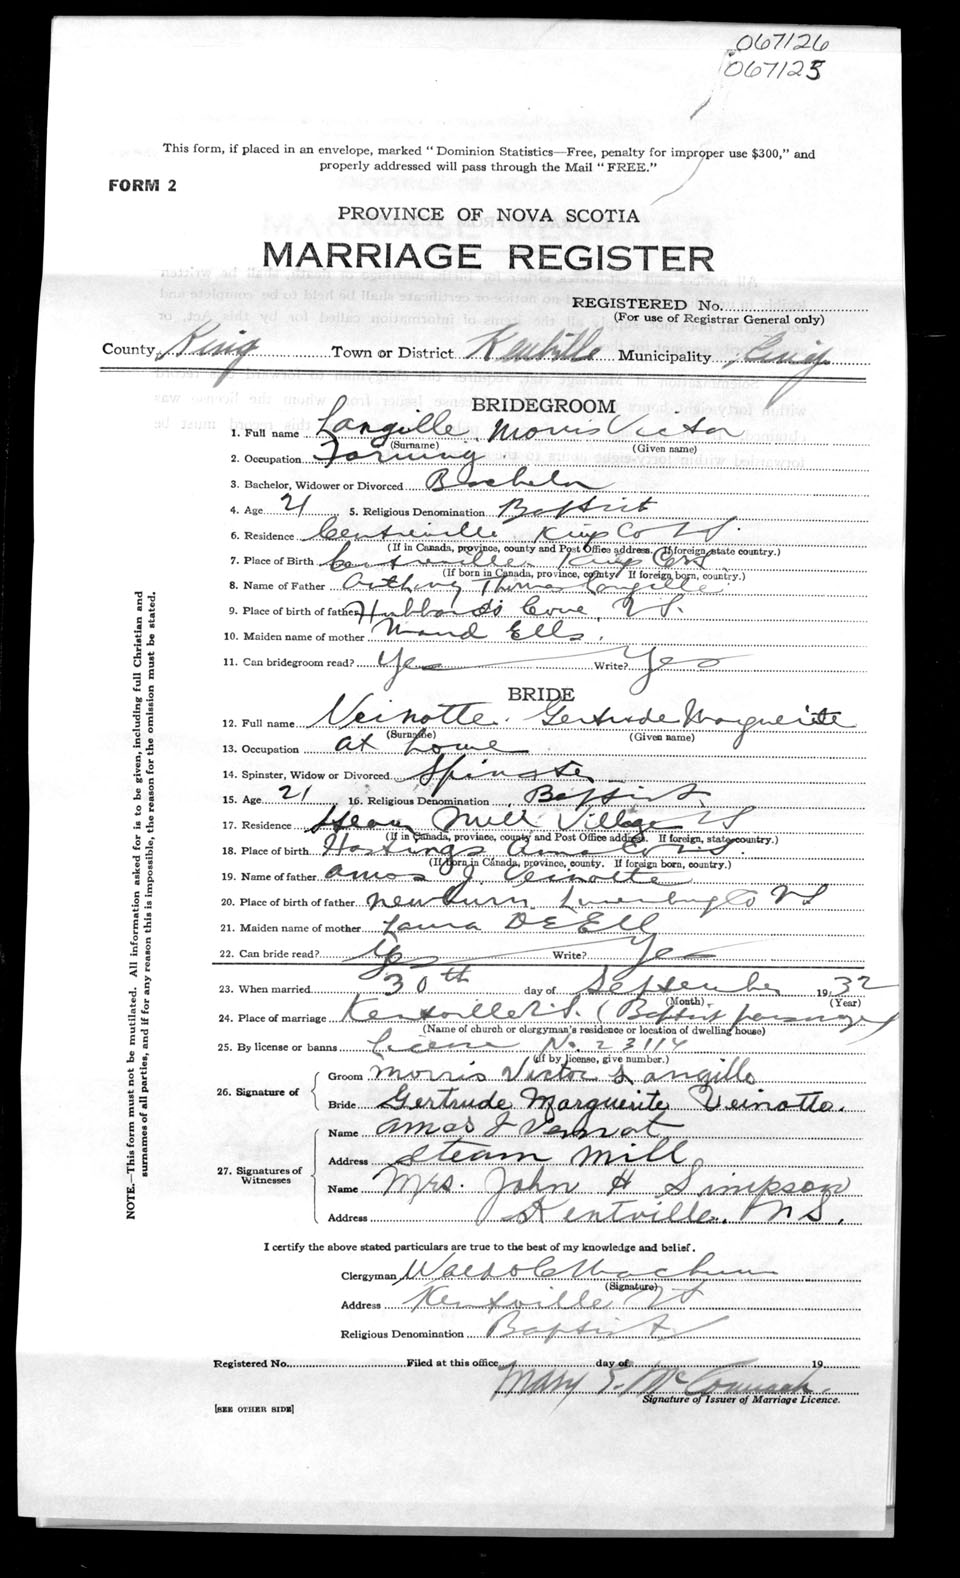 067126
067125
This form, if placed in an envelope, marked "Dominion Statistics—Free, penalty for improper use $300," and
properly addressed will pass through the Mail "FREE."
FORM 2
PROVINCE OF NOVA SCOTIA
MARRIAGE REGISTER
REGISTERED No.
(For use of Registrar General only)
County King Town or District Kentville Municipality King
BRIDEGROOM
1. Full name Langille Morris Victor
(Surname) (Given name)
2. Occupation Farming
3. Bachelor, Widower or Divorced Bachelor
4. Age 21 5. Religious Denomination Baptist
6. Residence Centreville Kings Co NS.
(If in Canada, province, county and Post Office address. If foreign, state country.)
7. Place of Birth Centreville Kings Co NS
(If born in Canada, province, county. If foreign born, country.)
8. Name of Father Anthony Thomas Langille
9. Place of birth of father Hubbards Cove, N.S.
10. Maiden name of mother Maud Ells.
11. Can bridegroom read? Yes Write? Yes
BRIDE
12. Full name Veinotte. Gertrude Marguerite
(Surname) (Given name)
13. Occupation at home
14. Spinster, Widow or Divorced Spinster
15. Age 21 16. Religious Denomination Baptist
17. Residence Steam Mill Village NS
(If in Canada, province, county and Post Office address. If foreign, state country.)
18. Place of birth Hastings Anna Co NS.
(If born in Canada, province, county. If foreign born, country.)
19. Name of father Amos J. Veinotte
20. Place of birth of father Newburn Lunenburg Co NS
21. Maiden name of mother Laura DeEll
22. Can bride read? Yes Write? Yes
23. When married 30th day of September 1932
(Month) (Year)
24. Place of marriage Kentville N.S. (Baptist parsonage)
(Name of church or clergyman's residence or location of dwelling house)
25. By license or banns License No. 23114
(If by license, give number.)
26. Signature of
Groom Morris Victor Langille
Bride Gertrude Marguerite Veinotte.
27. Signatures of Witnesses
Name Amos J Veinot
Address Steam Mill
Name Mrs. John H Simpson
Address Kentville. N.S.
I certify the above stated particulars are true to the best of my knowledge and belief.
Clergyman Waldo C
(Signature)
Address Kentville NS
Religious Denomination Baptist
Registered No. Filed at this office day of 19
Mary E. McCormack
Signature of Issuer of Marriage Licence.
[SEE OTHER SIDE]
NOTE.—This form must not be mutilated. All information asked for is to be given, including full Christian and
surnames of all parties, and if for any reason this is impossible, the reason for the omission must be stated.